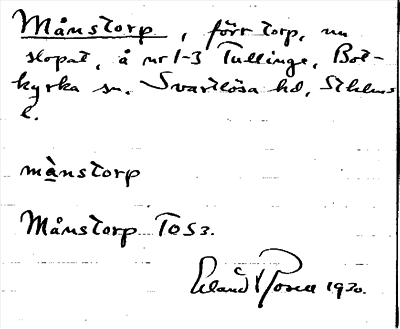 Månstorp, förr torp, nu
slopat, å nr 1-3 Tullinge, Bot-
kyrka sn. Svartlösa hd, Sthlms
l.
mànstorp
Månstorp T053.
Erland Rosell 1930.